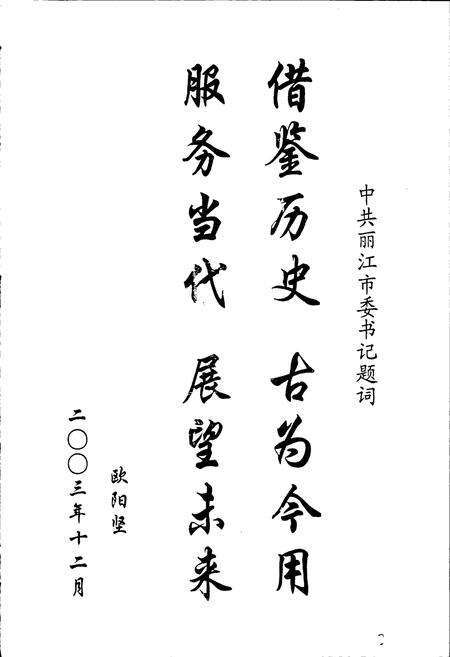 中共丽江市委书记题词
借鉴历史 古为今用
服务当代 展望未来
欧阳坚
二〇〇三年十二月